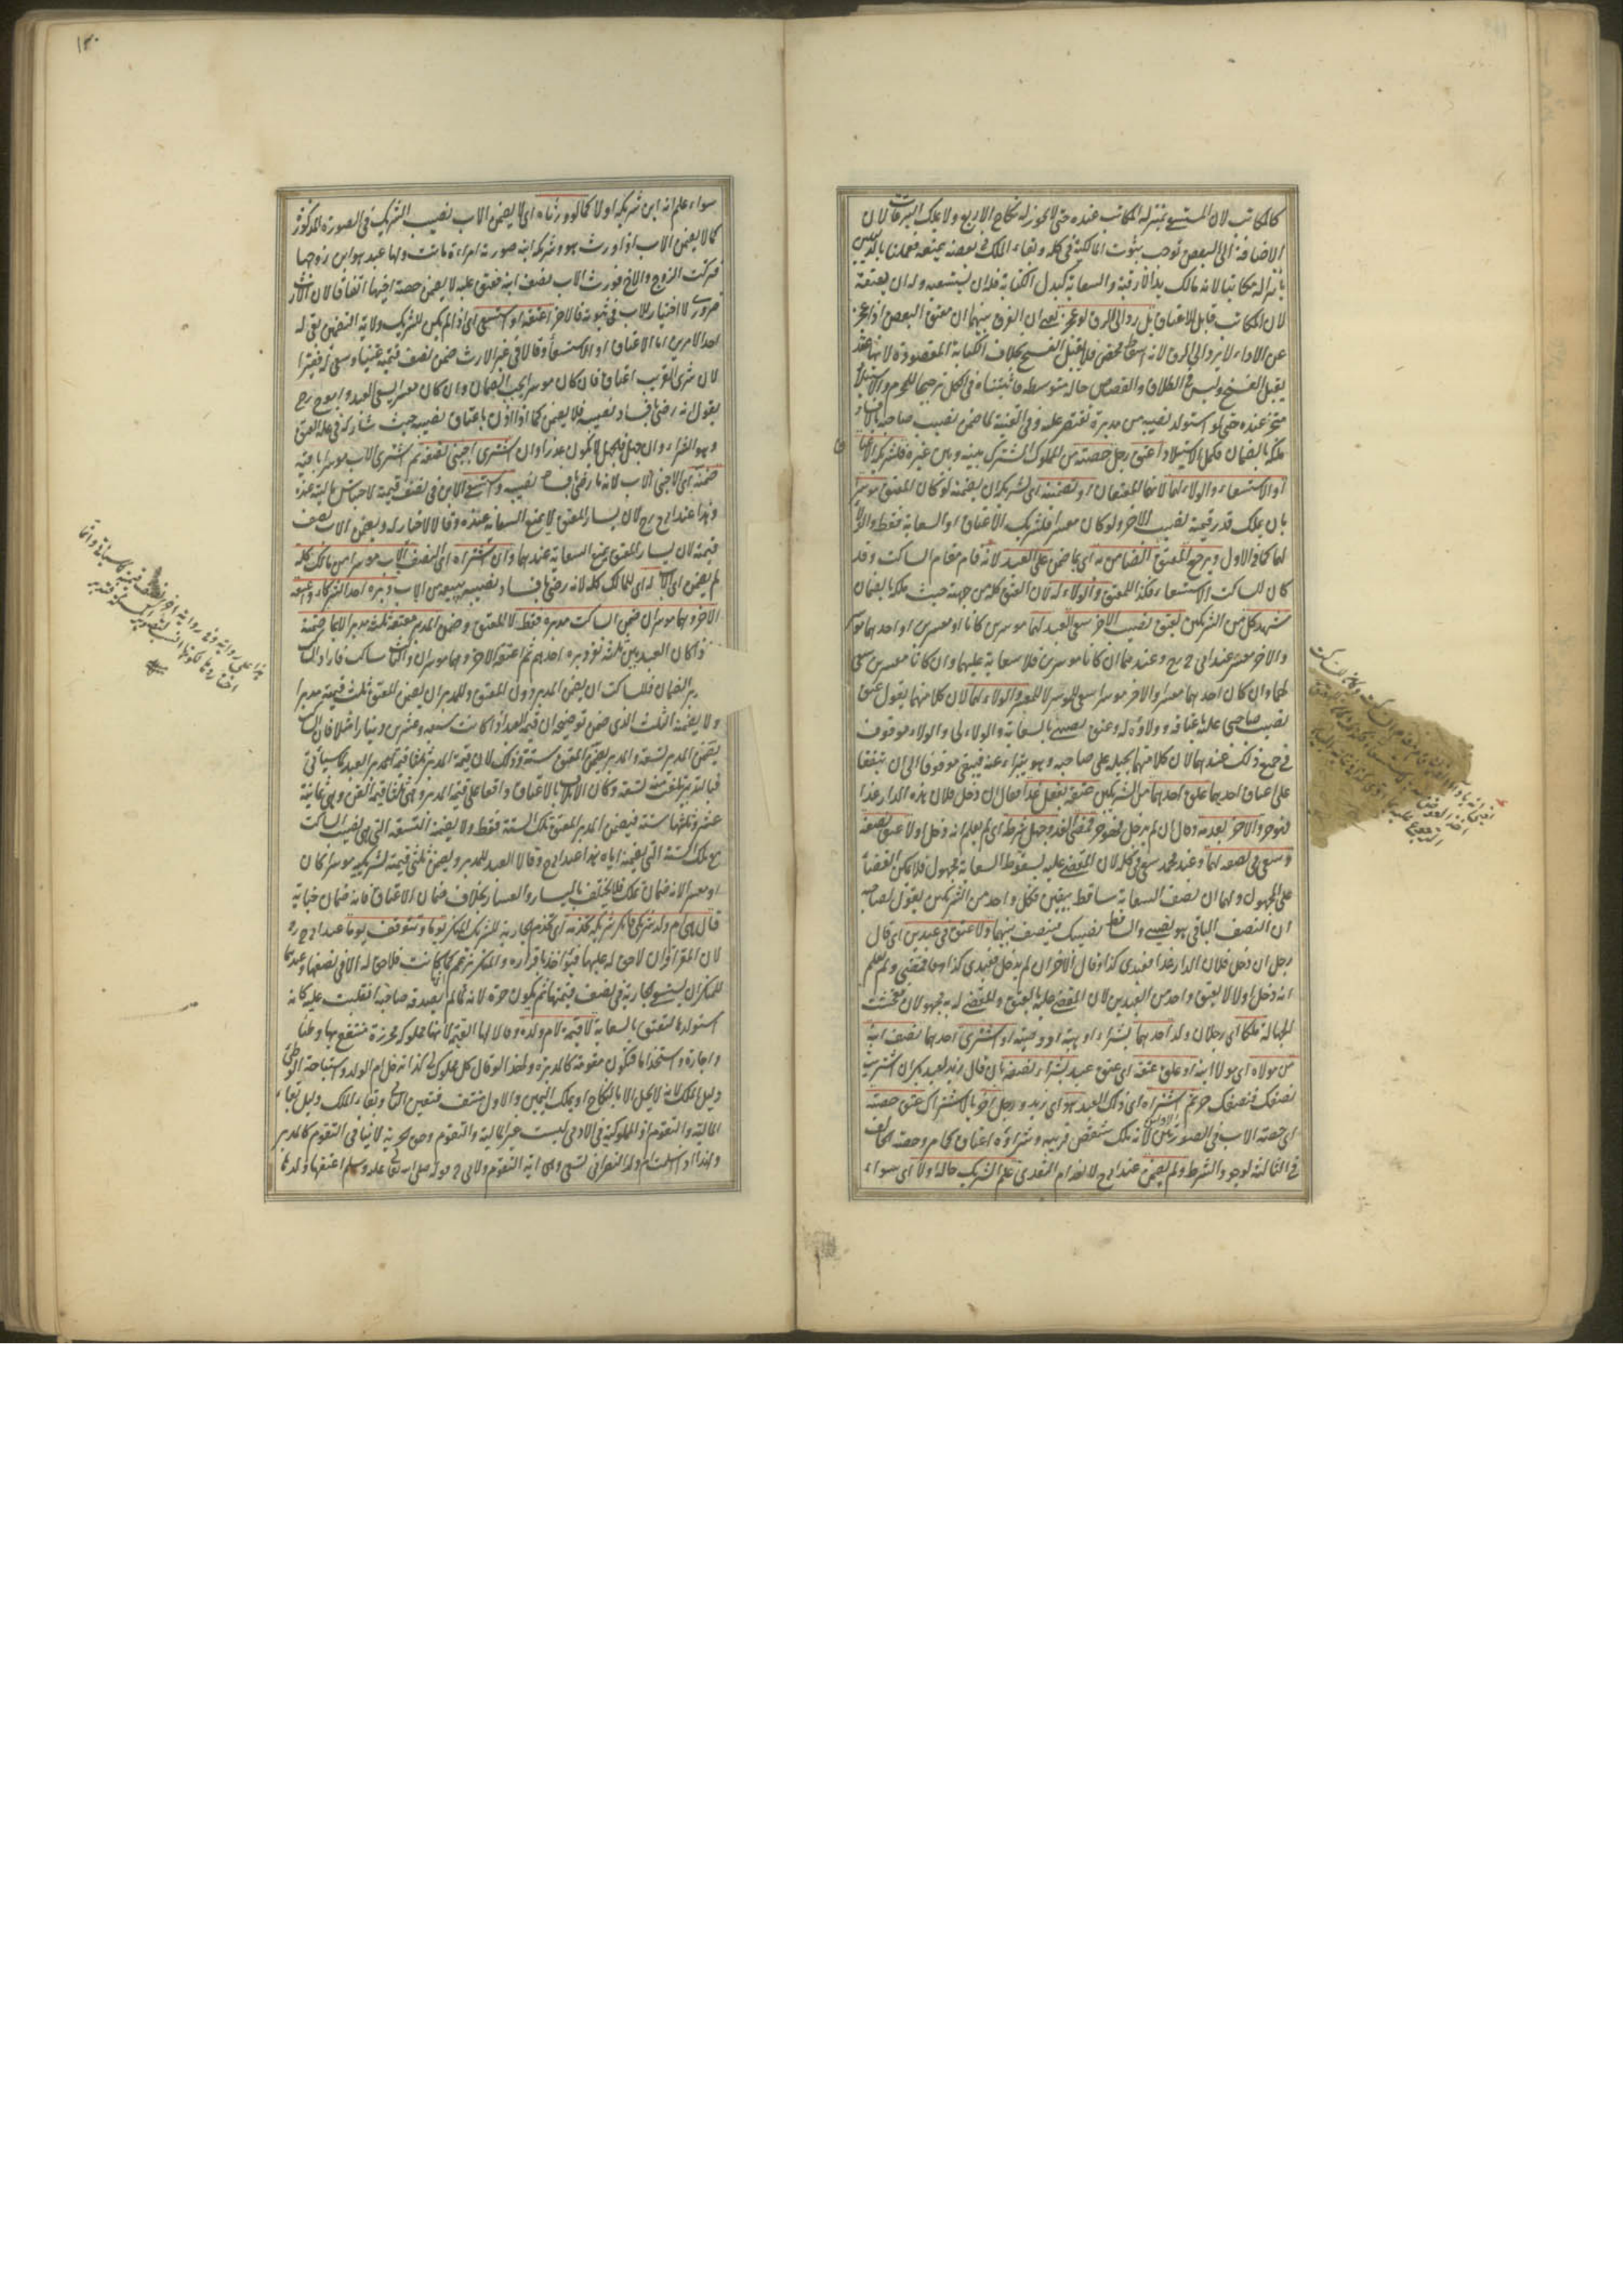 كالمكاتب لان المستسعى بمنزلة المكاتب عنده حتى لا يجوز له نكاح الاربع ولا يملك التبرعات لان
الاضافة الى البعض توجب ثبوت المالكية فى كله وبقاء الملك فى بعضه يمنعه فعملنا بالدليلين
بانزاله مكاتبا لانه مالك يدا لا رقبة والسعاية كبدل الكتابة فله ان يستسعيه وله ان يعتقه
لان المكاتب قابل للاعتاق بل رد الى الرق لو عجز يعنى ان الفرق بينهما ان معتق البعض اذا عجز
عن الاداء لا يرد الى الرق لانه اسقاط محض فلا يقبل الفسخ بخلاف الكتابة المقصودة لانها عقد
يقبل الفسخ وليس فى الطلاق والقصاص حالة متوسطة فاثبتناه فى الكل ترجيحا للمحرم والاستيلاد
متجز عنده حتى لو استولد نصيبه من مدبرة تقتصر عليه وفى القنة لما ضمن نصيب صاحبه بالافساد
ملكه بالضمان فكمل الاستيلاد اعتق رجل حصته من المملوك المشترك بينه وبين غيره فلشريكه الاعتاق
او الاستسعاء والولاء لهما لانهما المعتقان او تضمينه اى لشريكه ان يضمنه لو كان المعتق موسرا
بان يملك قدر قيمة نصيب الآخر ولو كان معسرا فلشريكه الاعتاق او السعاية فقط والولاء
لهما كما فى الاول ويرجع المعتق الضامن به اى بما ضمن على العبد لانه قام مقام الساكت وقد
كان للساكت الاستسعاء فكذا للمعتق والولاء له لان العتق كله من جهته حيث ملكه بالضمان
شهد كل من الشريكين بعتق نصيب الآخر سعى العبد لهما موسرين كانا او معسرين او احدهما موسر
والآخر معسر عند ابى ح رح وعندهما ان كانا موسرين فلا سعاية عليهما وان كانا معسرين سعى
لهما وان كان احدهما معسرا والآخر موسرا سعى للموسر لا للمعسر والولاء لهما لان كلا منهما يقول عتق
نصيب صاحبى عليه باعتاقه وولاؤه له وعتق نصيبى بالسعاية والولاء لى والولاء موقوف
فى جميع ذلك عندهما لان كلا منهما يحيله على صاحبه وهو يتبرأ عنه فيبقى موقوفا الى ان يتفقا
على عتاق احدهما علق احدهما من الشريكين عتقه بفعل غدا فقال ان دخل فلان هذه الدار غدا
فهو حر والآخر بعدمه وقال ان لم يدخل فهو حر فمضى الغد وجهل شرطه اى لم يعلم انه دخل اولا عتق نصفه
وسعى فى نصفه لهما وعند محمد سعى فى كله لان المقضى عليه بسقوط السعاية مجهول فلا يمكن القضاء
على المجهول ولهما ان نصف السعاية ساقط بيقين فكل واحد من الشريكين يقول لصاحبه
ان النصف الباقى هو نصيبى والساقط نصيبك فينصف بينهما ولا عتق فى عبدين اى قال
رجل ان دخل فلان الدار غدا فعبدى كذا وقال الآخر ان لم يدخل فعبدى كذا فمضى ولم يعلم
انه دخل اولا لا يعتق واحد من العبدين لان المقضى عليه بالعتق والمقضى له به مجهولان ففحشت
الجهالة ملكا اى رجلان ولد احدهما بشراء او هبة او وصية او اشترى احدهما نصف ابنه
من مولاه اى مولى ابنه او علق عتقه اى عتق عبد بشراء نصفه بان قال زيد لعبد بكر ان اشتريت
نصفك فنصفك حر ثم اشتراه اى ذلك العبد هو اى زيد ورجل آخر بالاشتراك عتق حصته
اى حصته الاب فى الصورتين الاوليين لانه ملك شقص قريبه وشراؤه اعتاق كما مر وحصة الحالف
فى الثالثة لوجود الشرط ولم يضمن عند ابى ح لانعدام التعدى علم الشريك حاله اولا اى سواء
١٣٠
سواء علم انه ابن شريكه او لا كما لو ورثاه اى لا يضمن الاب نصيب الشريك فى الصورة المذكورة
كما لا يضمن الاب اذا ورث هو وشريكه ابنه صورته امرأة ماتت ولها عبد هو ابن زوجها
فتركت الزوج والاخ فورث الاب نصف ابنه فعتق عليه لا يضمن حصة اخيها اتفاقا لان الارث
ضرورى لا اختيار للاب فى ثبوته فالآخر اعتقه او استسعى اى اذا لم يكن للشريك ولاية التضمين بقى له
احد الامرين اما الاعتاق او الاستسعاء وقالا فى غير الارث ضمن نصف قيمته غنيا وسعى له فقيرا
لان شرى القريب اعتاق فان كان موسرا يجب الضمان وان كان معسرا يسعى العبد وابو ح رح
يقول انه رضى بافساد نصيبه فلا يضمن كما اذا اذن باعتاق نصيبه حيث شاركه فى علة العتق
وهو الشراء وان جهل فالجهل لا يكون عذرا وان اشترى اجنبى نصفه ثم اشترى الاب موسرا باقيه
ضمنه اى الاجنبى الاب لانه ما رضى بافساد نصيبه او استسعى الابن فى نصف قيمته لاحتباس ماليته عنده
وهذا عند ابى ح رح لان يسار المعتق لا يمنع السعاية عنده وقالا لا خيار له ويضمن الاب نصف
قيمته لان يسار المعتق يمنع السعاية عندهما وان اشتراه اى النصف الاب موسرا من مالك كله
لم يضمن اى الاب له اى للمالك كله لانه رضى بافساد نصيبه ببيعه من الاب دبره احد الشركاء واعتقه
الآخر وهما موسران ضمن الساكت مدبره فقط لا المعتق وضمن المدبر معتقه ثلثه مدبرا لا بما ضمنه
اذا كان العبد بين ثلثة نفر دبره احدهم ثم اعتقه الآخر وهما موسران والثالث ساكت فارادا الساكت
والمدبر الضمان فللساكت ان يضمن المدبر دون المعتق وللمدبر ان يضمن المعتق ثلث قيمته مدبرا
ولا يضمنه الثلث الذى ضمن توضيحه ان قيمة العبد اذا كانت سبعة وعشرين دينارا مثلا فان الساكت
يضمن المدبر تسعة والمدبر يضمن المعتق ستة وذلك لان قيمة المدبر ثلثا قيمة العبد كما سيأتى
فبالتدبير تلفت منه تسعة وكان الاتلاف بالاعتاق واقعا على قيمة المدبر وهى ثلثا قيمة القن وهى ثمانية
عشر وثلثها ستة فيضمن المدبر المعتق تلك الستة فقط ولا يضمنه التسعة التى هى نصيب الساكت
مع تلك الستة التى يضمنه اياه هذا عند ابى ح وقالا العبد للمدبر ويضمن ثلثى قيمته لشريكيه موسرا كان
او معسرا لانه ضمان تملك فلا يختلف باليسار والعسار بخلاف ضمان الاعتاق فانه ضمان جناية
قال هى ام ولد شريكى فانكر شريكه تخدمه اى تخدم الجارية الشريك المنكر يوما وتتوقف يوما عند ابى ح رح
لان المقر اقر ان لا حق له عليها فيؤاخذ باقراره والمنكر يزعم انها كما كانت فلا حق له الا فى نصفها وعندهما
للمنكر ان يستسعى الجارية فى نصف قيمتها ثم يكون حرة لانه لما لم يصدقه صاحبه انقلب عليه كانه
استولدها فتعتق بالسعاية لا قيمة لام ولد وقالا لها القيمة لانها مملوكة محرزة منتفع بها وطئا
واجارة واستخداما فتكون متقومة كالمدبرة ولهذا لو قال كل مملوك لى كذا تدخل ام الولد واستباحة الوطئ
دليل الملك لانه لا يحل الا بالنكاح او بملك اليمين والاول منتف فتعين الثانى وبقاء الملك دليل بقاء
المالية والتقوم اذ المملوكية فى الآدمى ليست غير المالية والتقوم وحق الحرية لا ينافى التقوم كالمدبر
ولهذا اذا اسلمت ام ولد النصرانى تسعى وهى آية التقوم ولابى ح قوله صلى الله تعالى عليه وسلم اعتقها ولدها